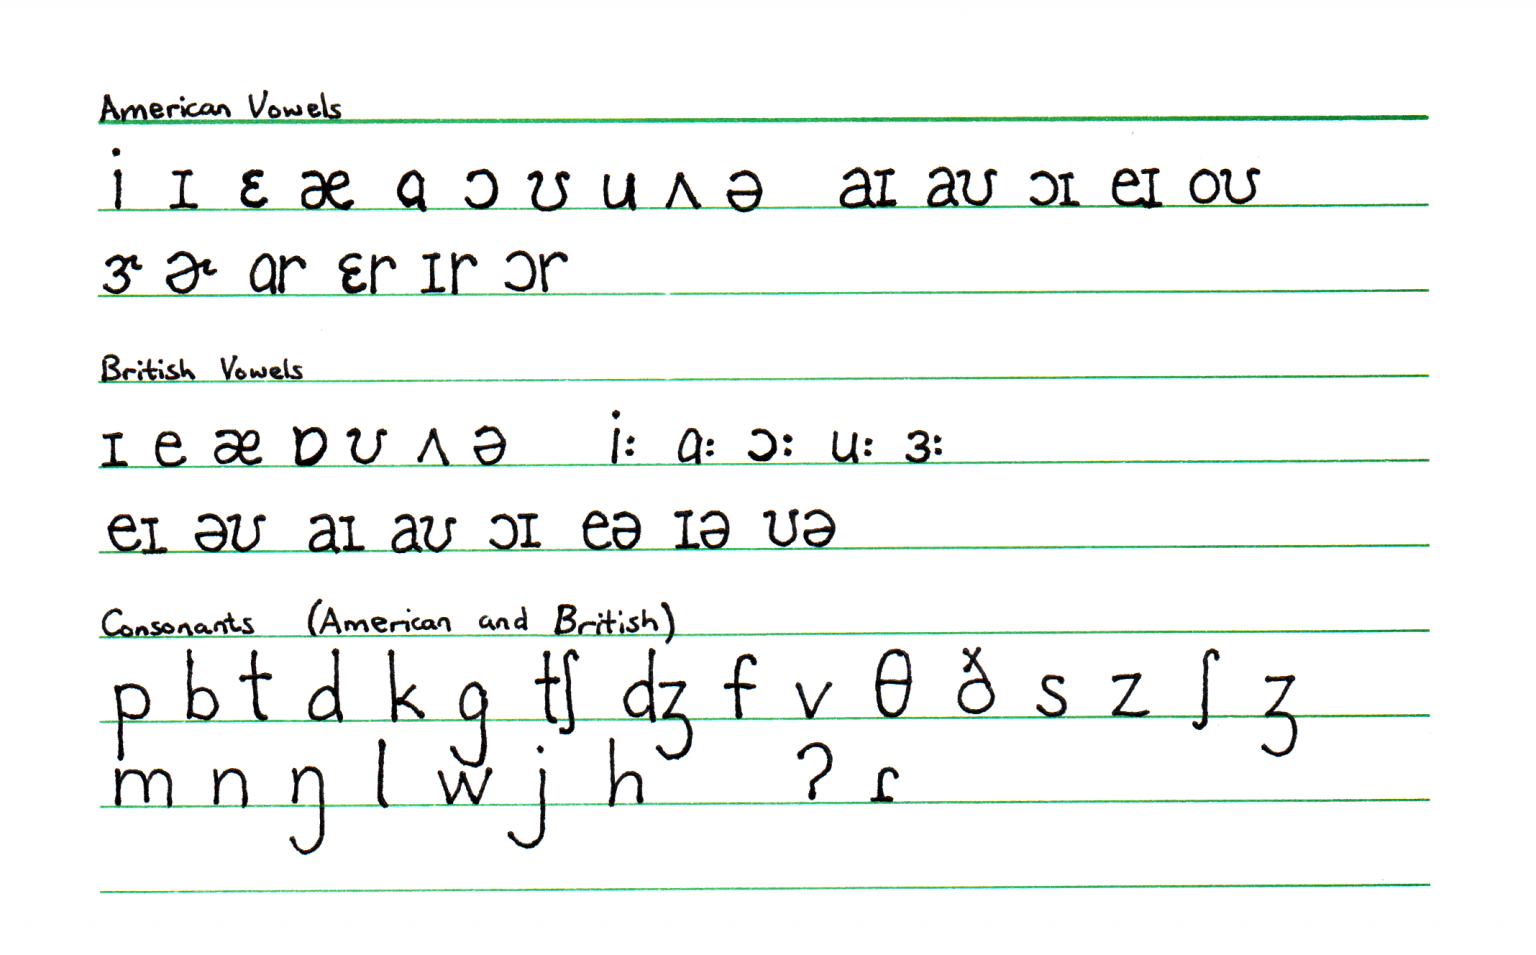 American Vowels
i ɪ ɛ æ ɑ ɔ ʊ u ʌ ə aɪ aʊ ɔɪ eɪ oʊ
ɝ ɚ ɑr ɛr ɪr ɔr
British Vowels
ɪ e æ ɒ ʊ ʌ ə iː ɑː ɔː uː ɜː
eɪ əʊ aɪ aʊ ɔɪ eə ɪə ʊə
Consonants (American and British)
p b t d k g tʃ dʒ f v θ ð s z ʃ ʒ
m n ŋ l w j h ʔ ɾ